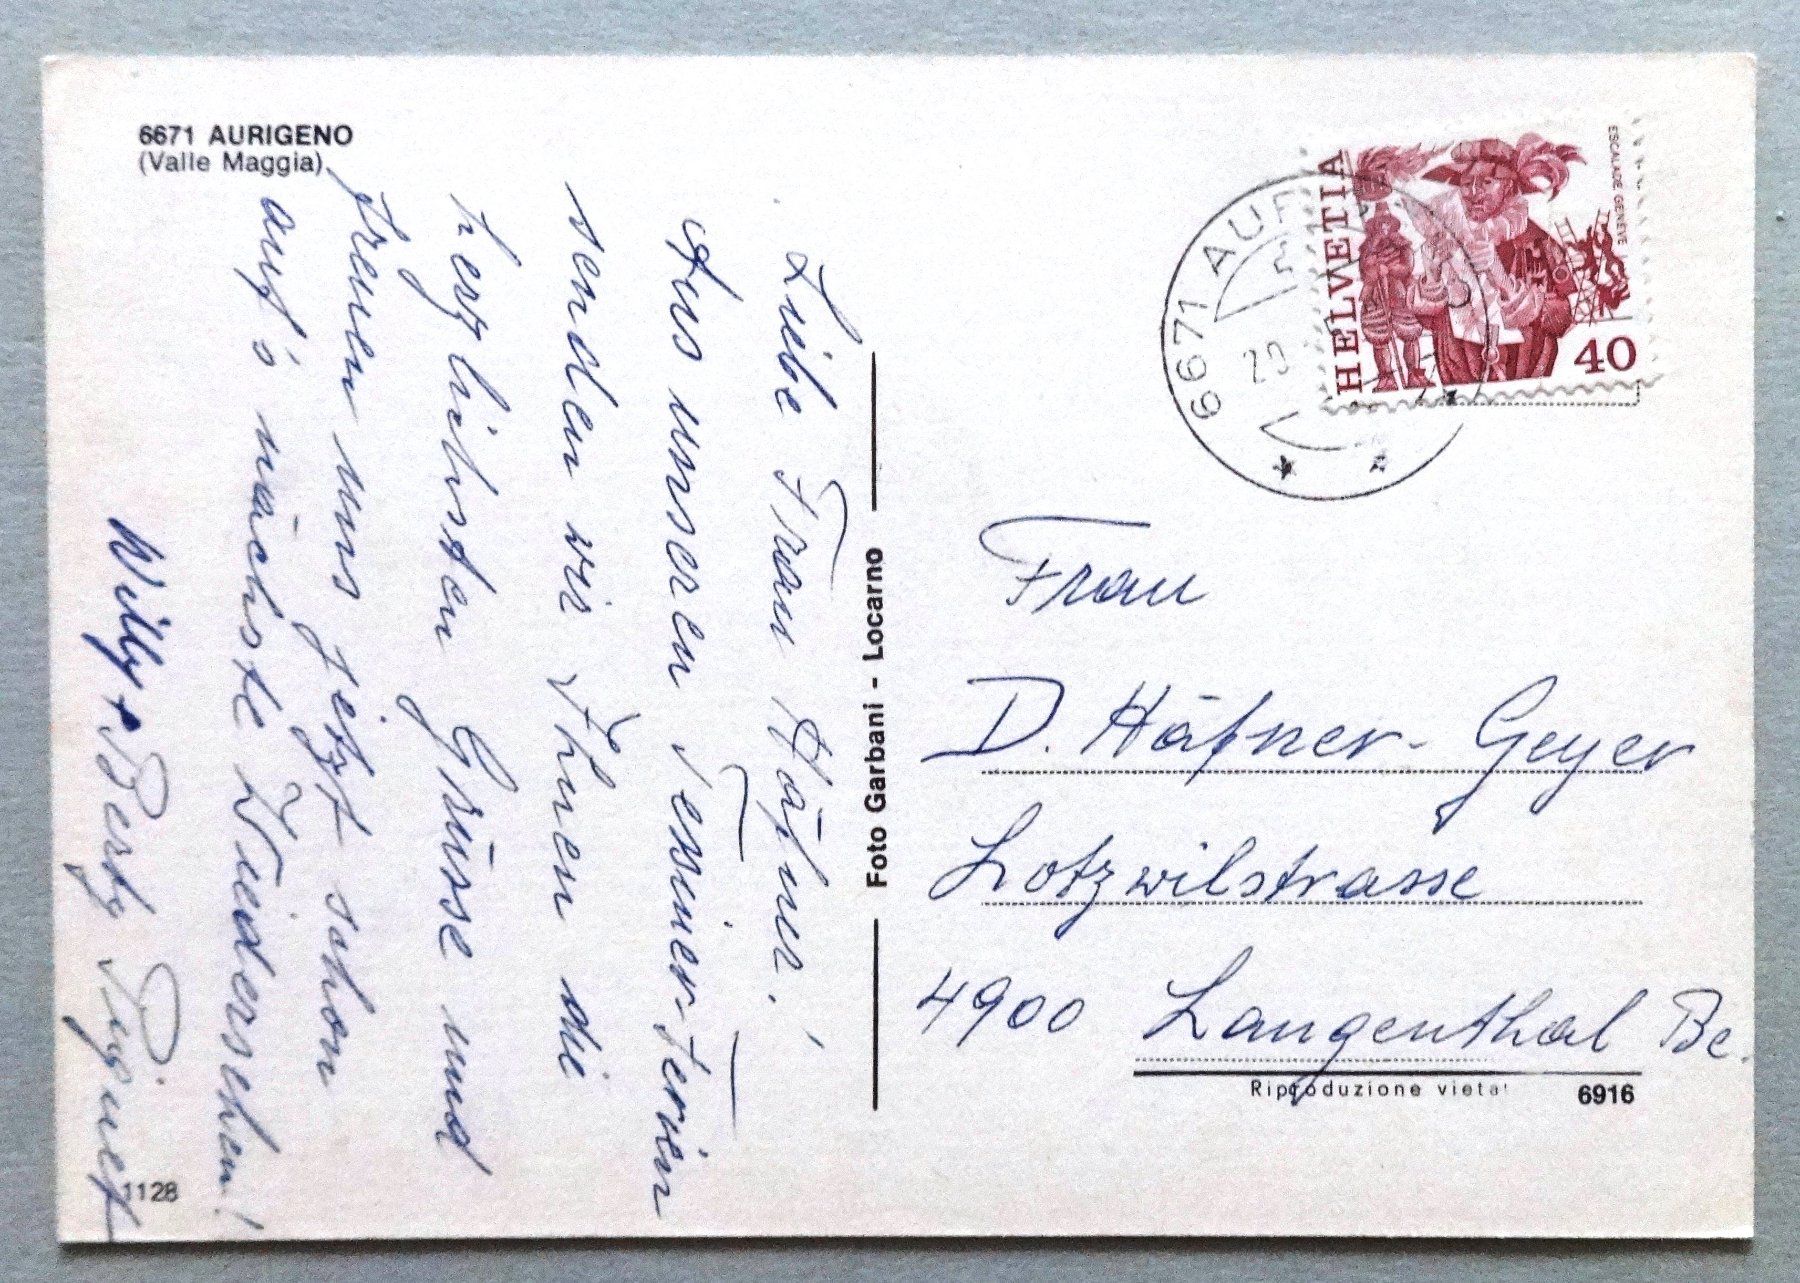 6671 AURIGENO
(Valle Maggia)
Liebe Frau Häfner!
Aus unseren Tessiner-Ferien
senden wir Ihnen die
herzlichsten Grüsse und
freuen uns jetzt schon
auf's nächste Wiedersehen!
Willy + Berty Piguet
1128
Foto Garbani - Locarno
HELVETIA
ESCALADE GENÈVE
40
6671 AURIGENO
20
Frau
D. Häfner-Geyer
Lotzwilstrasse
4900 Langenthal Be.
Riproduzione vietat
6916